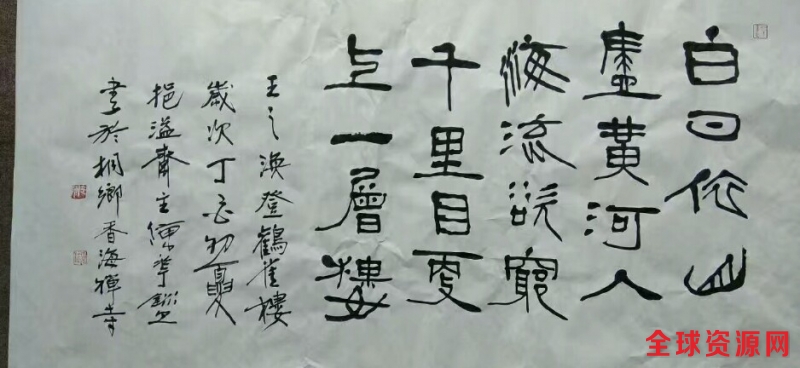 白日依山
盡黃河入
海流欲窮
千里目更
上一層樓
王之渙登鶴雀樓
歲次丁酉初夏
挹溢齋主
書於桐鄉香海禪寺
全球资源网